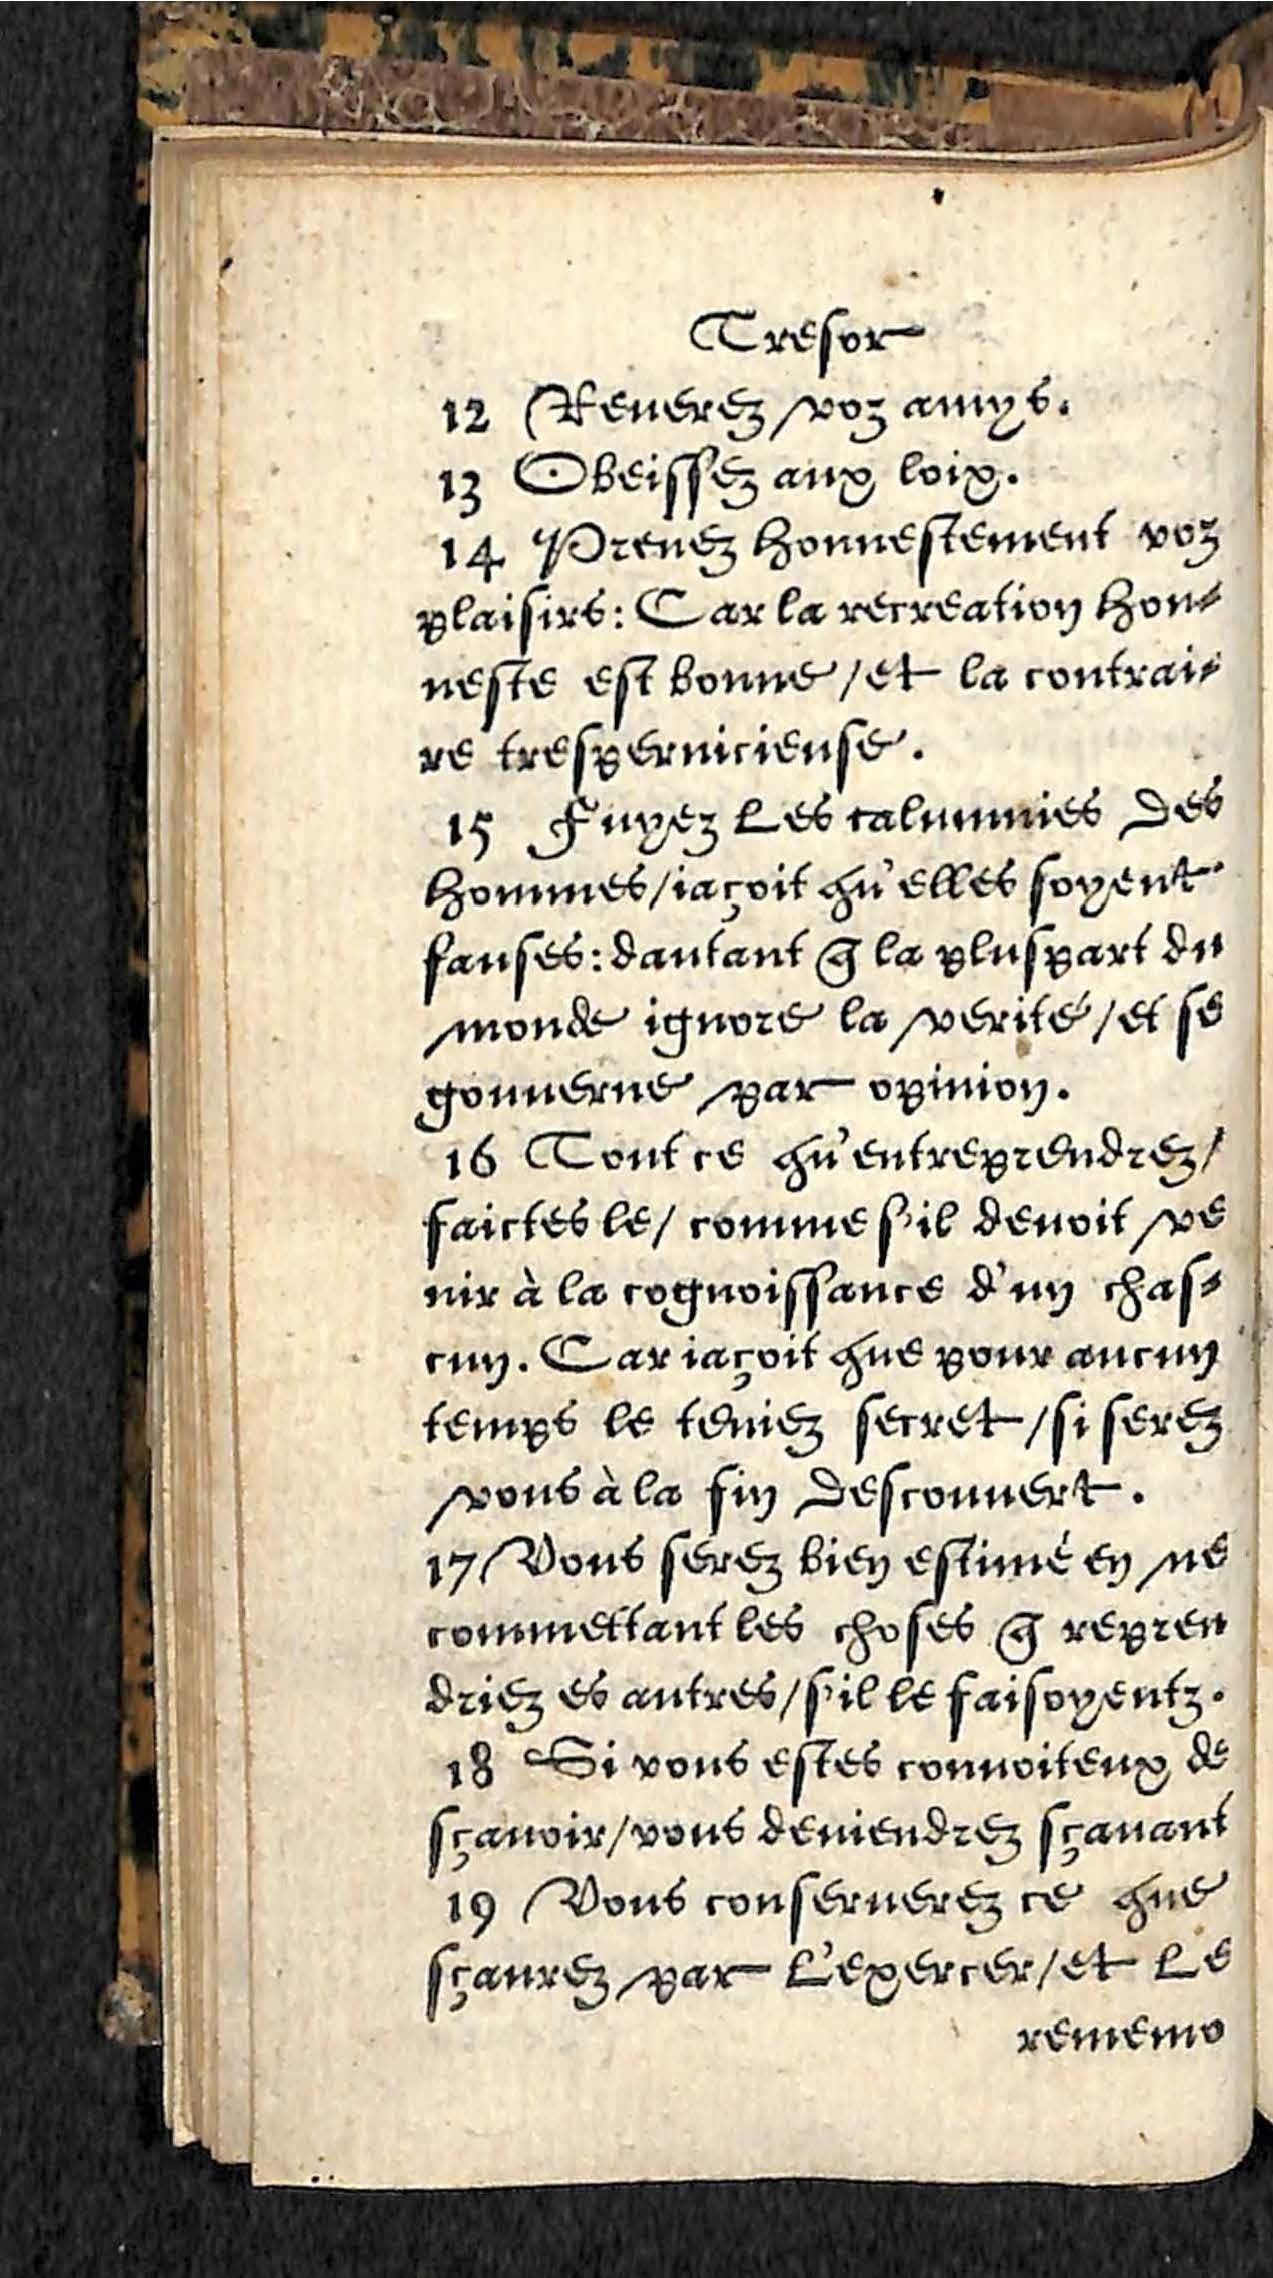 Tresor
12 Reuerez voz amys.
13 Obeissez aux loix.
14 Prenez honnestement voz
plaisirs: Car la recreation hon-
neste est bonne / et la contrai-
re trespernicieuse.
15 Fuyez les calumnies des
hommes / iaçoit qu'elles soyent
fauses: dautant q̃ la pluspart du
monde ignore la verité / et se
gouuerne par opinion.
16 Tout ce qu'entreprendrez /
faictes le / comme s'il deuoit ve
nir à la cognoissance d'un chas-
cun. Car iaçoit que pour aucun
temps le teniez secret / si serez
vous à la fin descouuert.
17 Vous serez bien estimé en ne
commettant les choses q̃ repren
driez es autres / s'il le faisoyentz.
18 Si vous estes conuoiteux de
sçauoir / vous deuiendrez sçauant
19 Vous conseruerez ce que
sçaurez par l'exercer / et le
rememo